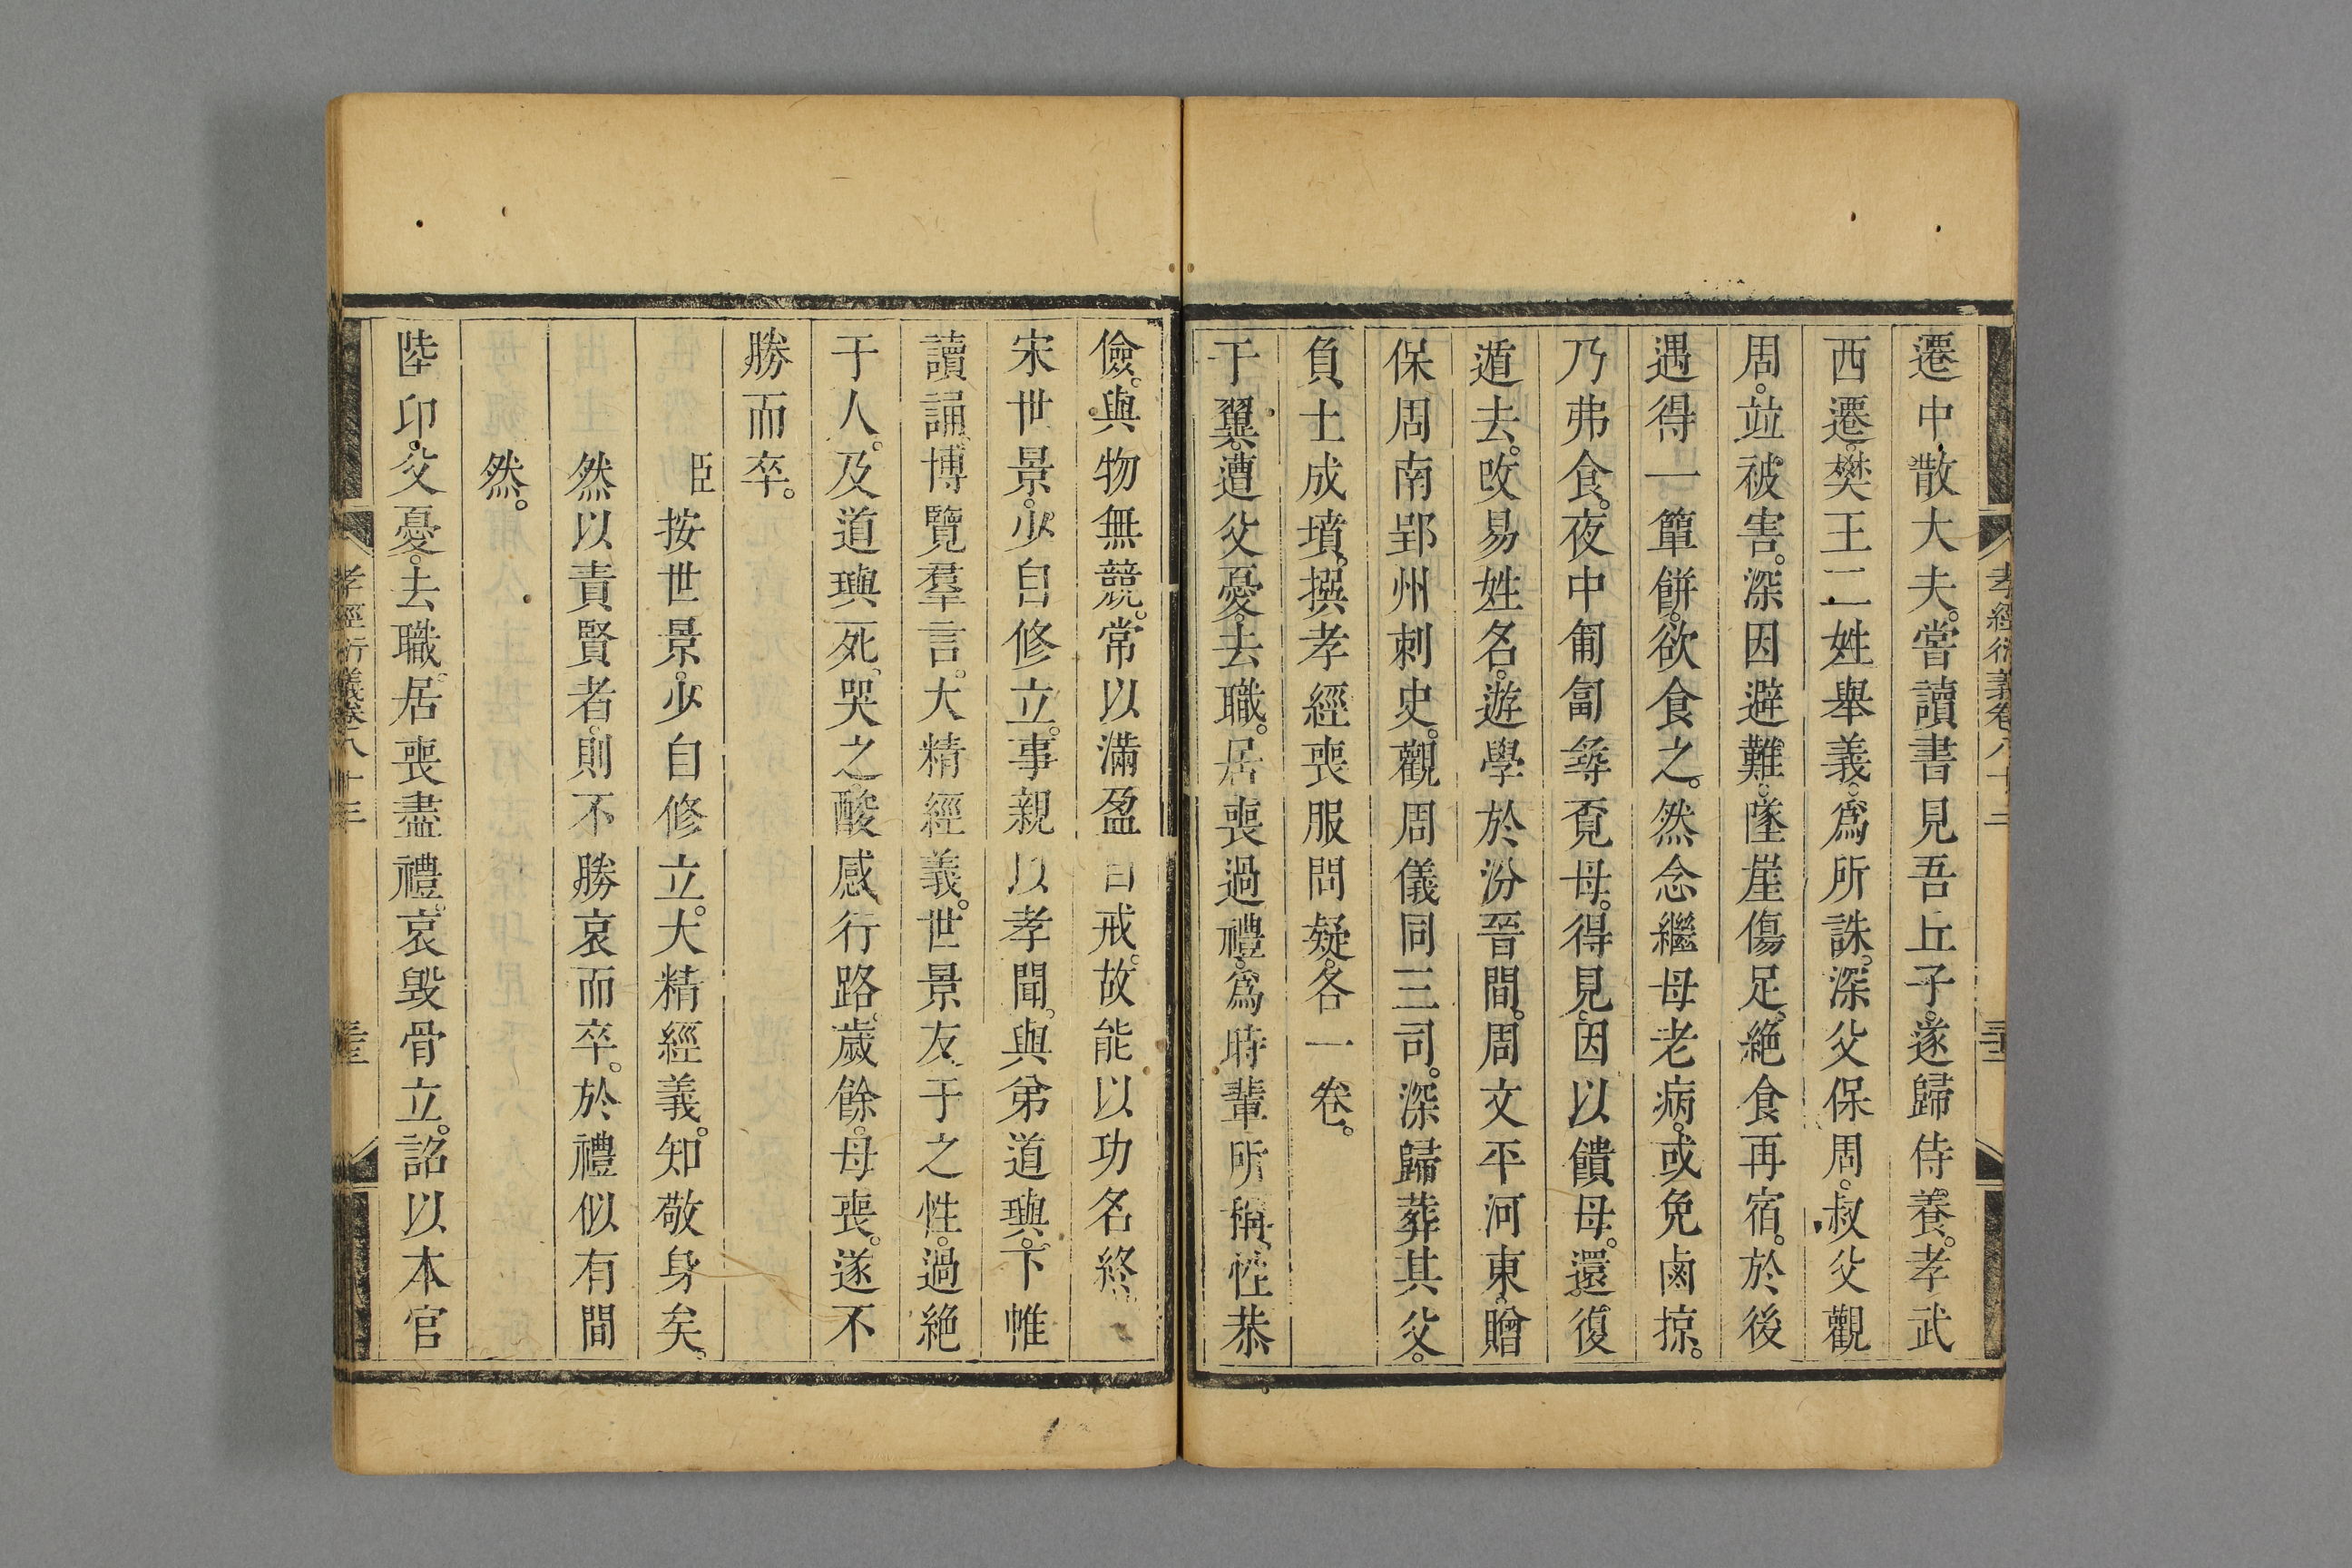 遷中散大夫。嘗讀書見吾丘子。遂歸侍養。孝武
西遷。樊王二姓舉義。爲所誅。深父保周。叔父觀
周。竝被害。深因避難。墜崖傷足。絕食再宿。於後
遇得一簞餅。欲食之。然念繼母老病。或免鹵掠。
乃弗食。夜中匍匐尋覓母。得見。因以饋母。還復
遁去。改易姓名。遊學於汾晉間。周文平河東。贈
保周南郢州刺史。觀周儀同三司。深歸葬其父。
負土成墳。撰孝經喪服問疑。各一卷。
于翼。遭父憂。去職。居喪過禮。爲時輩所稱。性恭
儉。與物無競。常以滿盈自戒。故能以功名終
宋世景。少自修立。事親以孝聞。與弟道璵。下帷
讀誦。博覽羣言。大精經義。世景友于之性。過絕
于人。及道璵死。哭之酸感行路。歲餘。母喪。遂不
勝而卒。
臣按世景。少自修立。大精經義。知敬身矣。
然以責賢者。則不勝哀而卒。於禮似有間
然。
陸印。父憂。去職。居喪盡禮。哀毀骨立。詔以本官
孝經衍義卷八十三
孝經衍義卷八十三